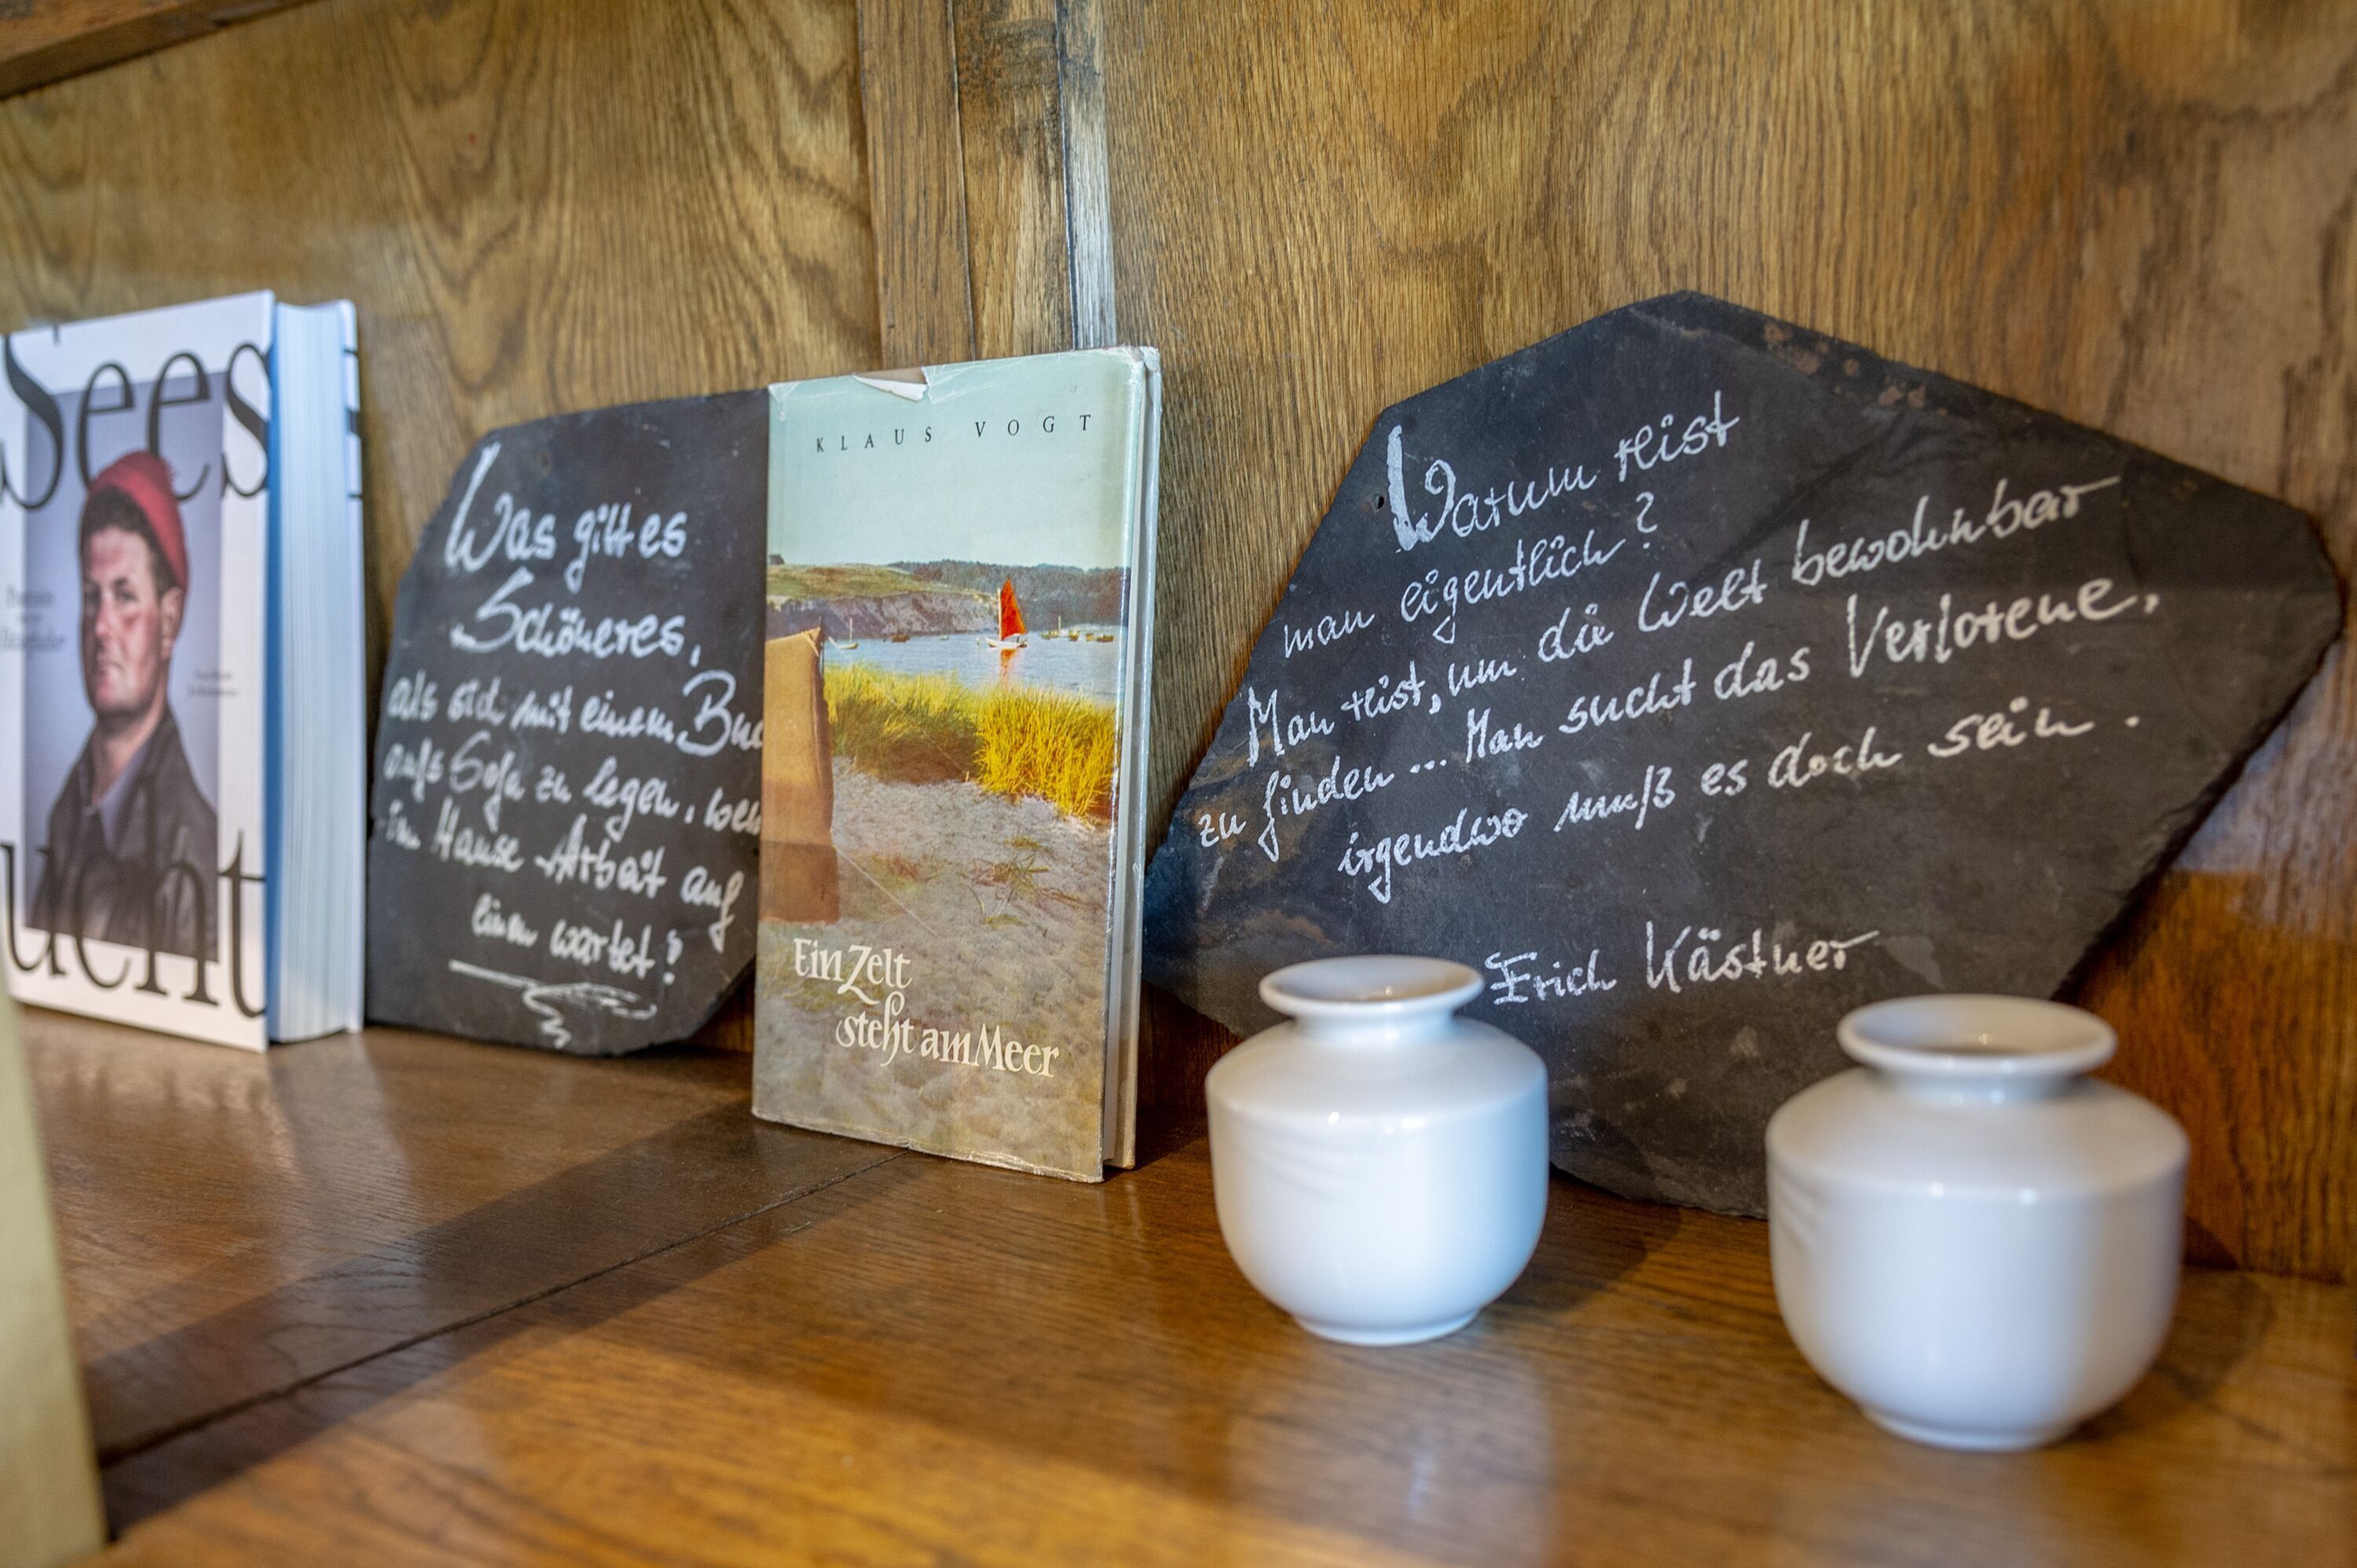 Sees
ucht
Was gibt es
Schöneres,
als sich mit einem Buc
aufs Sofa zu legen, wen
im Hause Arbeit auf
einen wartet?
KLAUS VOGT
Ein Zelt
steht am Meer
Warum reist
man eigentlich?
Man reist, um die Welt bewohnbar
zu finden ... Man sucht das Verlorene,
irgendwo muß es doch sein.
Erich Kästner